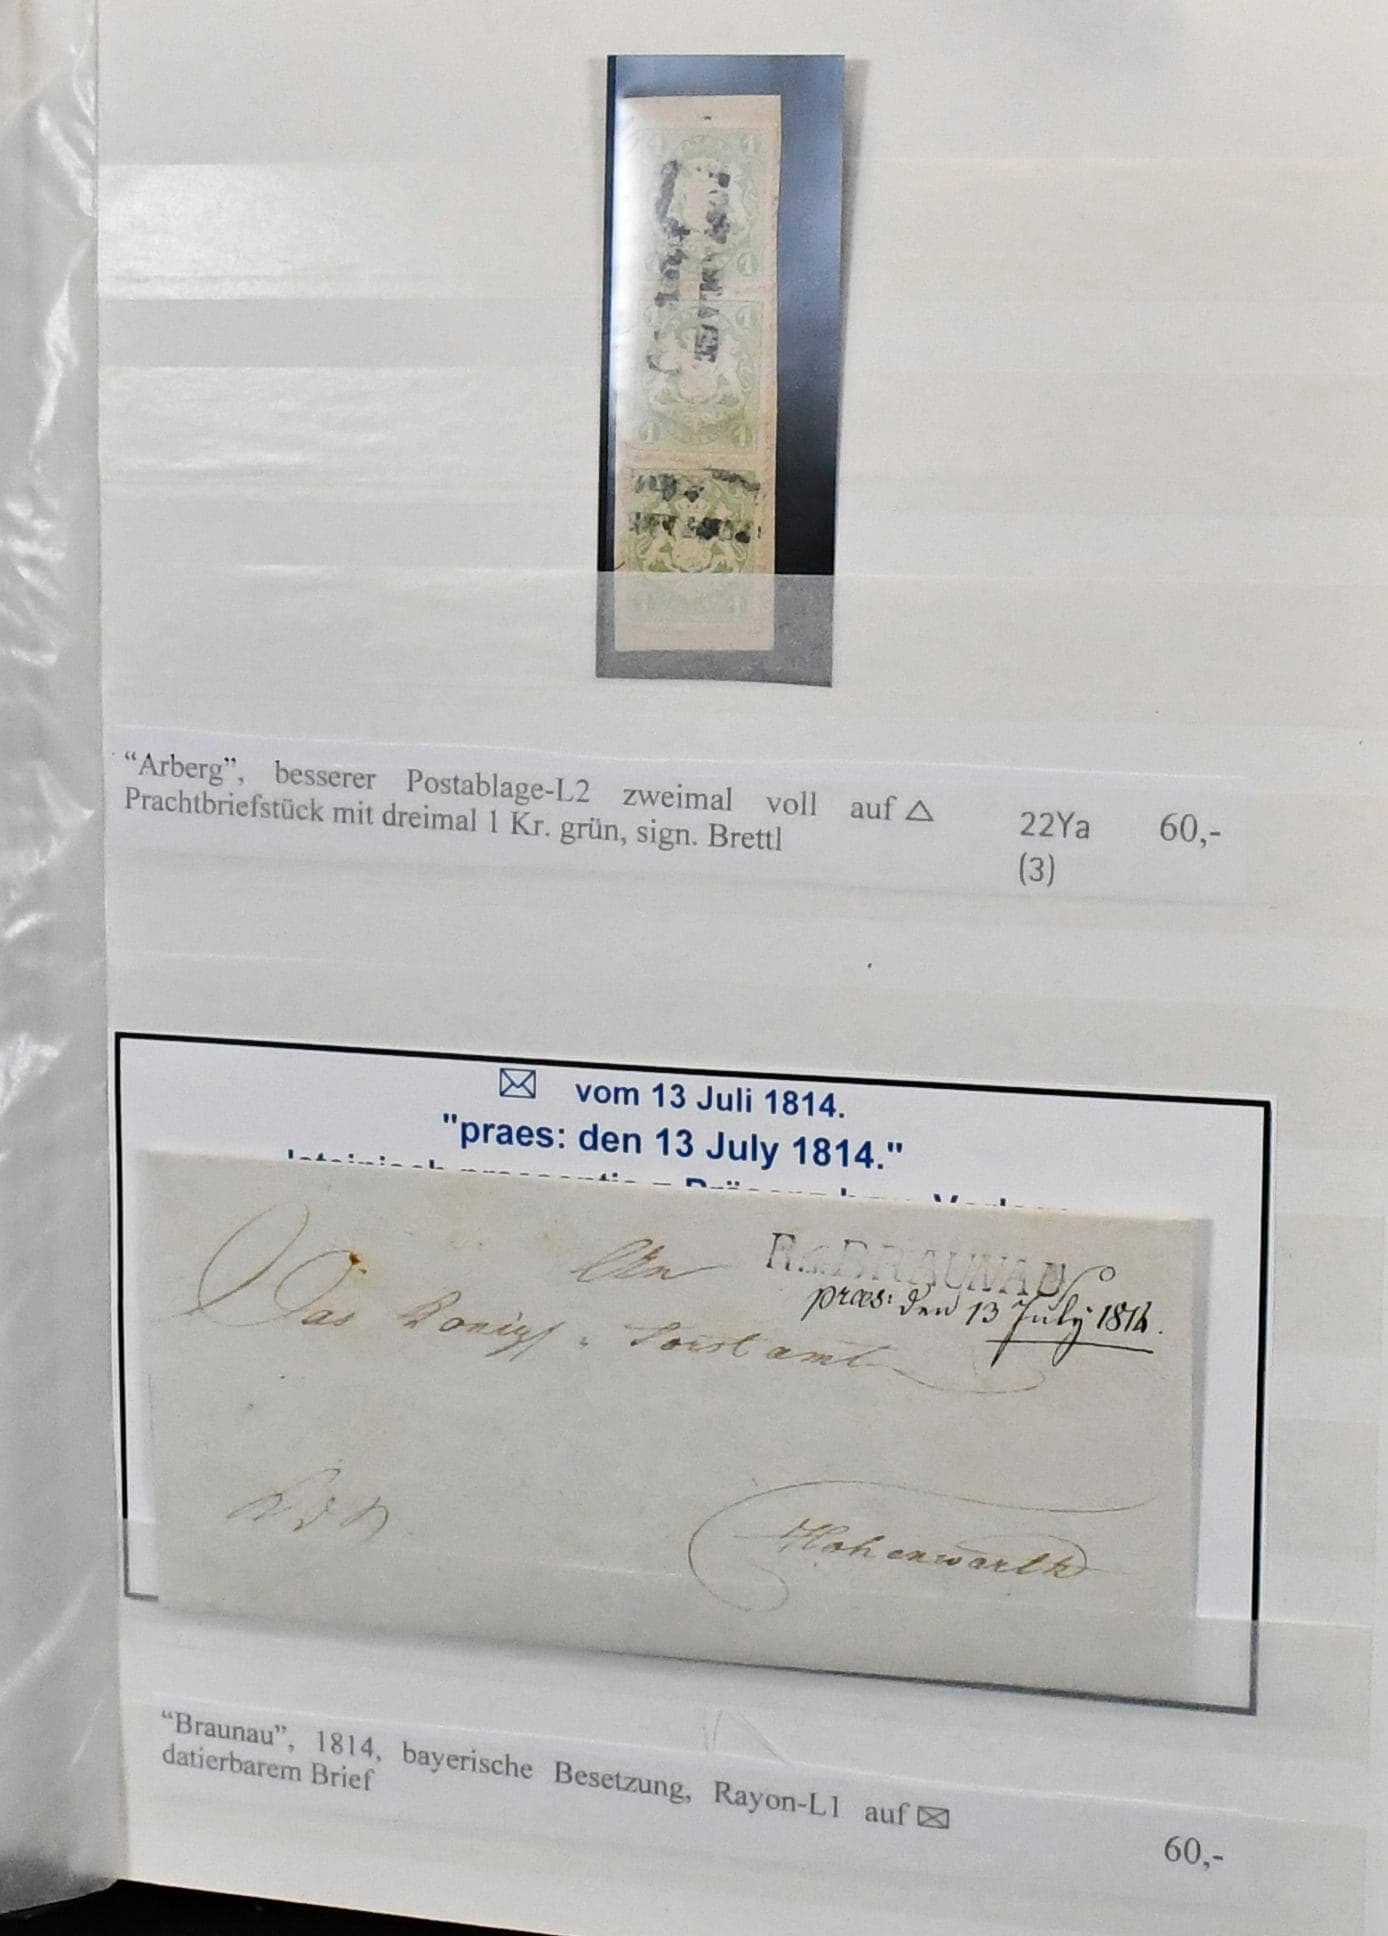 1 1
1 1
1 1
1 1
1 1
“Arberg”, besserer Postablage-L2 zweimal voll auf △
Prachtbriefstück mit dreimal 1 Kr. grün, sign. Brettl
22Ya 60,-
(3)
✉ vom 13 Juli 1814.
"praes: den 13 July 1814."
An
R. BRAUNAU
præs: den 13 July 1814.
Das Königl. Forstamt
Hohenwarth
“Braunau”, 1814, bayerische Besetzung, Rayon-L1 auf ✉
datierbarem Brief
60,-